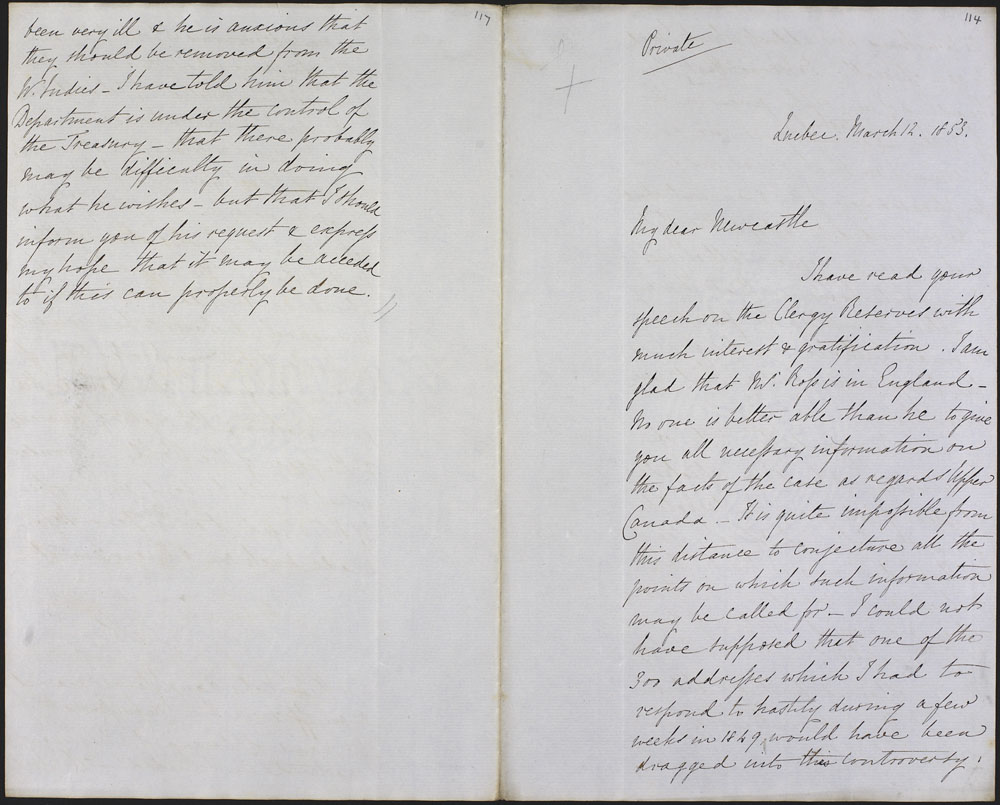 117
been very ill & he is anxious that
they should be removed from the
W. Indies - I have told him that the
Department is under the control of
the Treasury - that there probably
may be difficulty in doing
what he wishes - but that I should
inform you of his request & express
my hope that it may be acceded
to if this can properly be done.
114
Private
Quebec. March 12. 1853.
My dear Newcastle
I have read your
speech on the Clergy Reserves with
much interest & gratification. I am
glad that Mr. Ross is in England -
No one is better able than he to give
you all necessary information on
the facts of the case as regards Upper
Canada - It is quite impossible from
this distance to conjecture all the
points on which such information
may be called for - I could not
have supposed that one of the
300 addresses which I had to
respond to hastily during a few
weeks in 1849, would have been
dragged into this controversy.